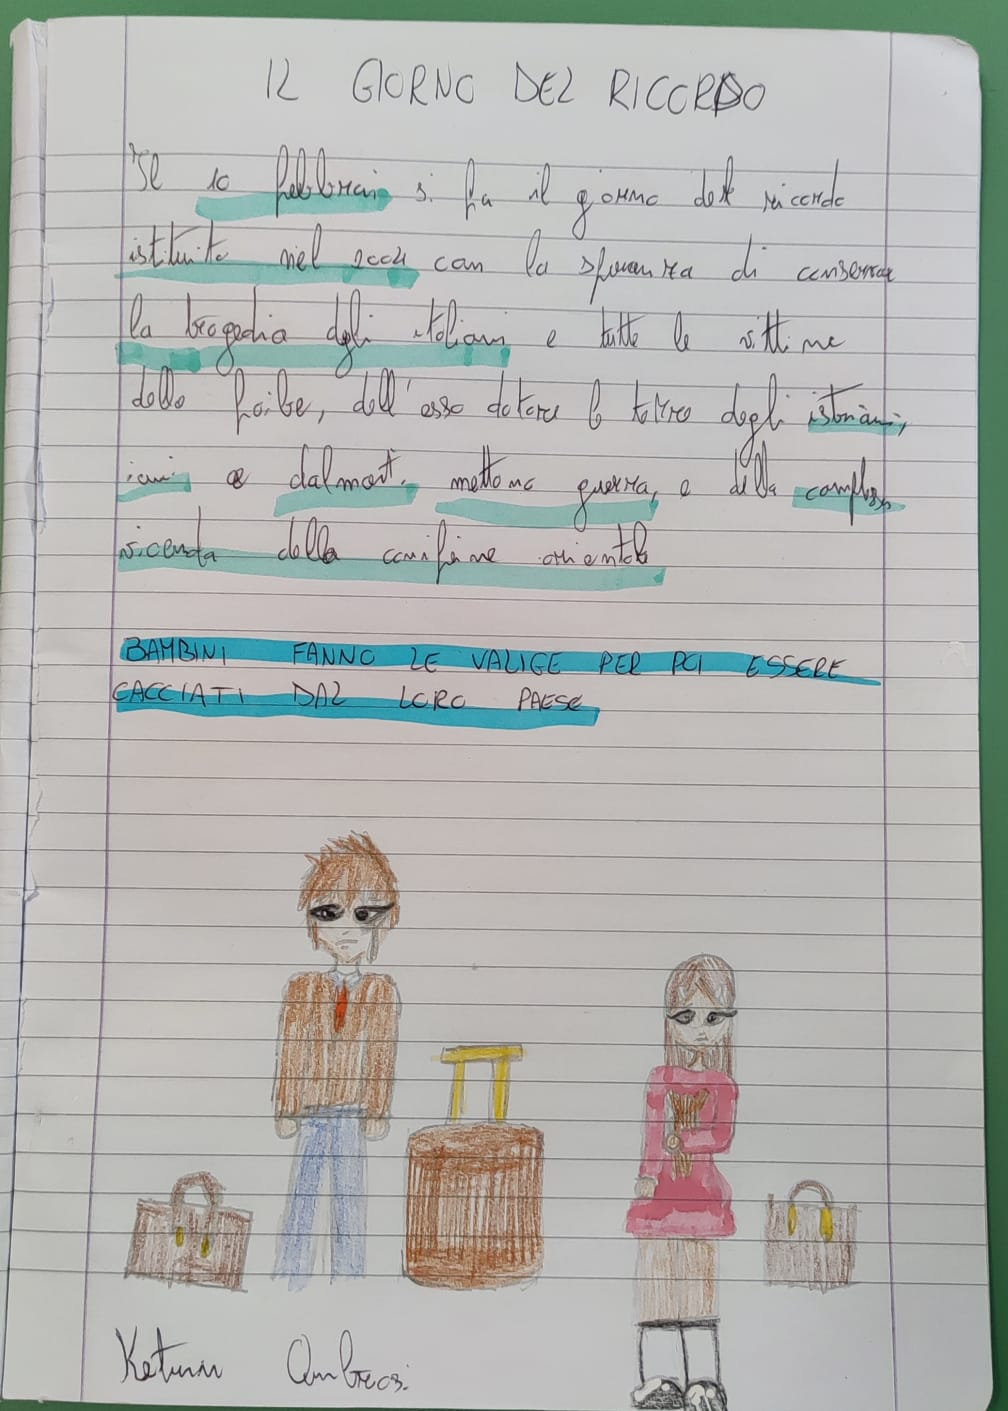 IL GIORNO DEL RICORDO
Il 10 febbraio si fa il giorno del ricordo
istituito nel 2004 con la speranza di conservare
la tragedia degli italiani e tutte le vittime
delle foibe, dell'esso degli istriani,
e dalmati, guerra, e della complessa
vicenda della confine orientale
BAMBINI FANNO LE VALIGE PER POI ESSERE
CACCIATI DAL LORO PAESE
Ambrosi